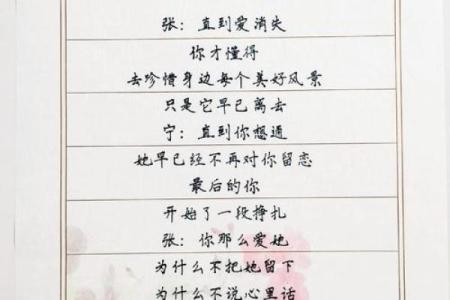 张：直到爱消失
你才懂得
去珍惜身边每个美好风景
只是它早已离去
宁：直到你想通
她早已经不再对你留恋
最后的你
开始了一段挣扎
张：你那么爱她
为什么不把她留下
为什么不说心里话